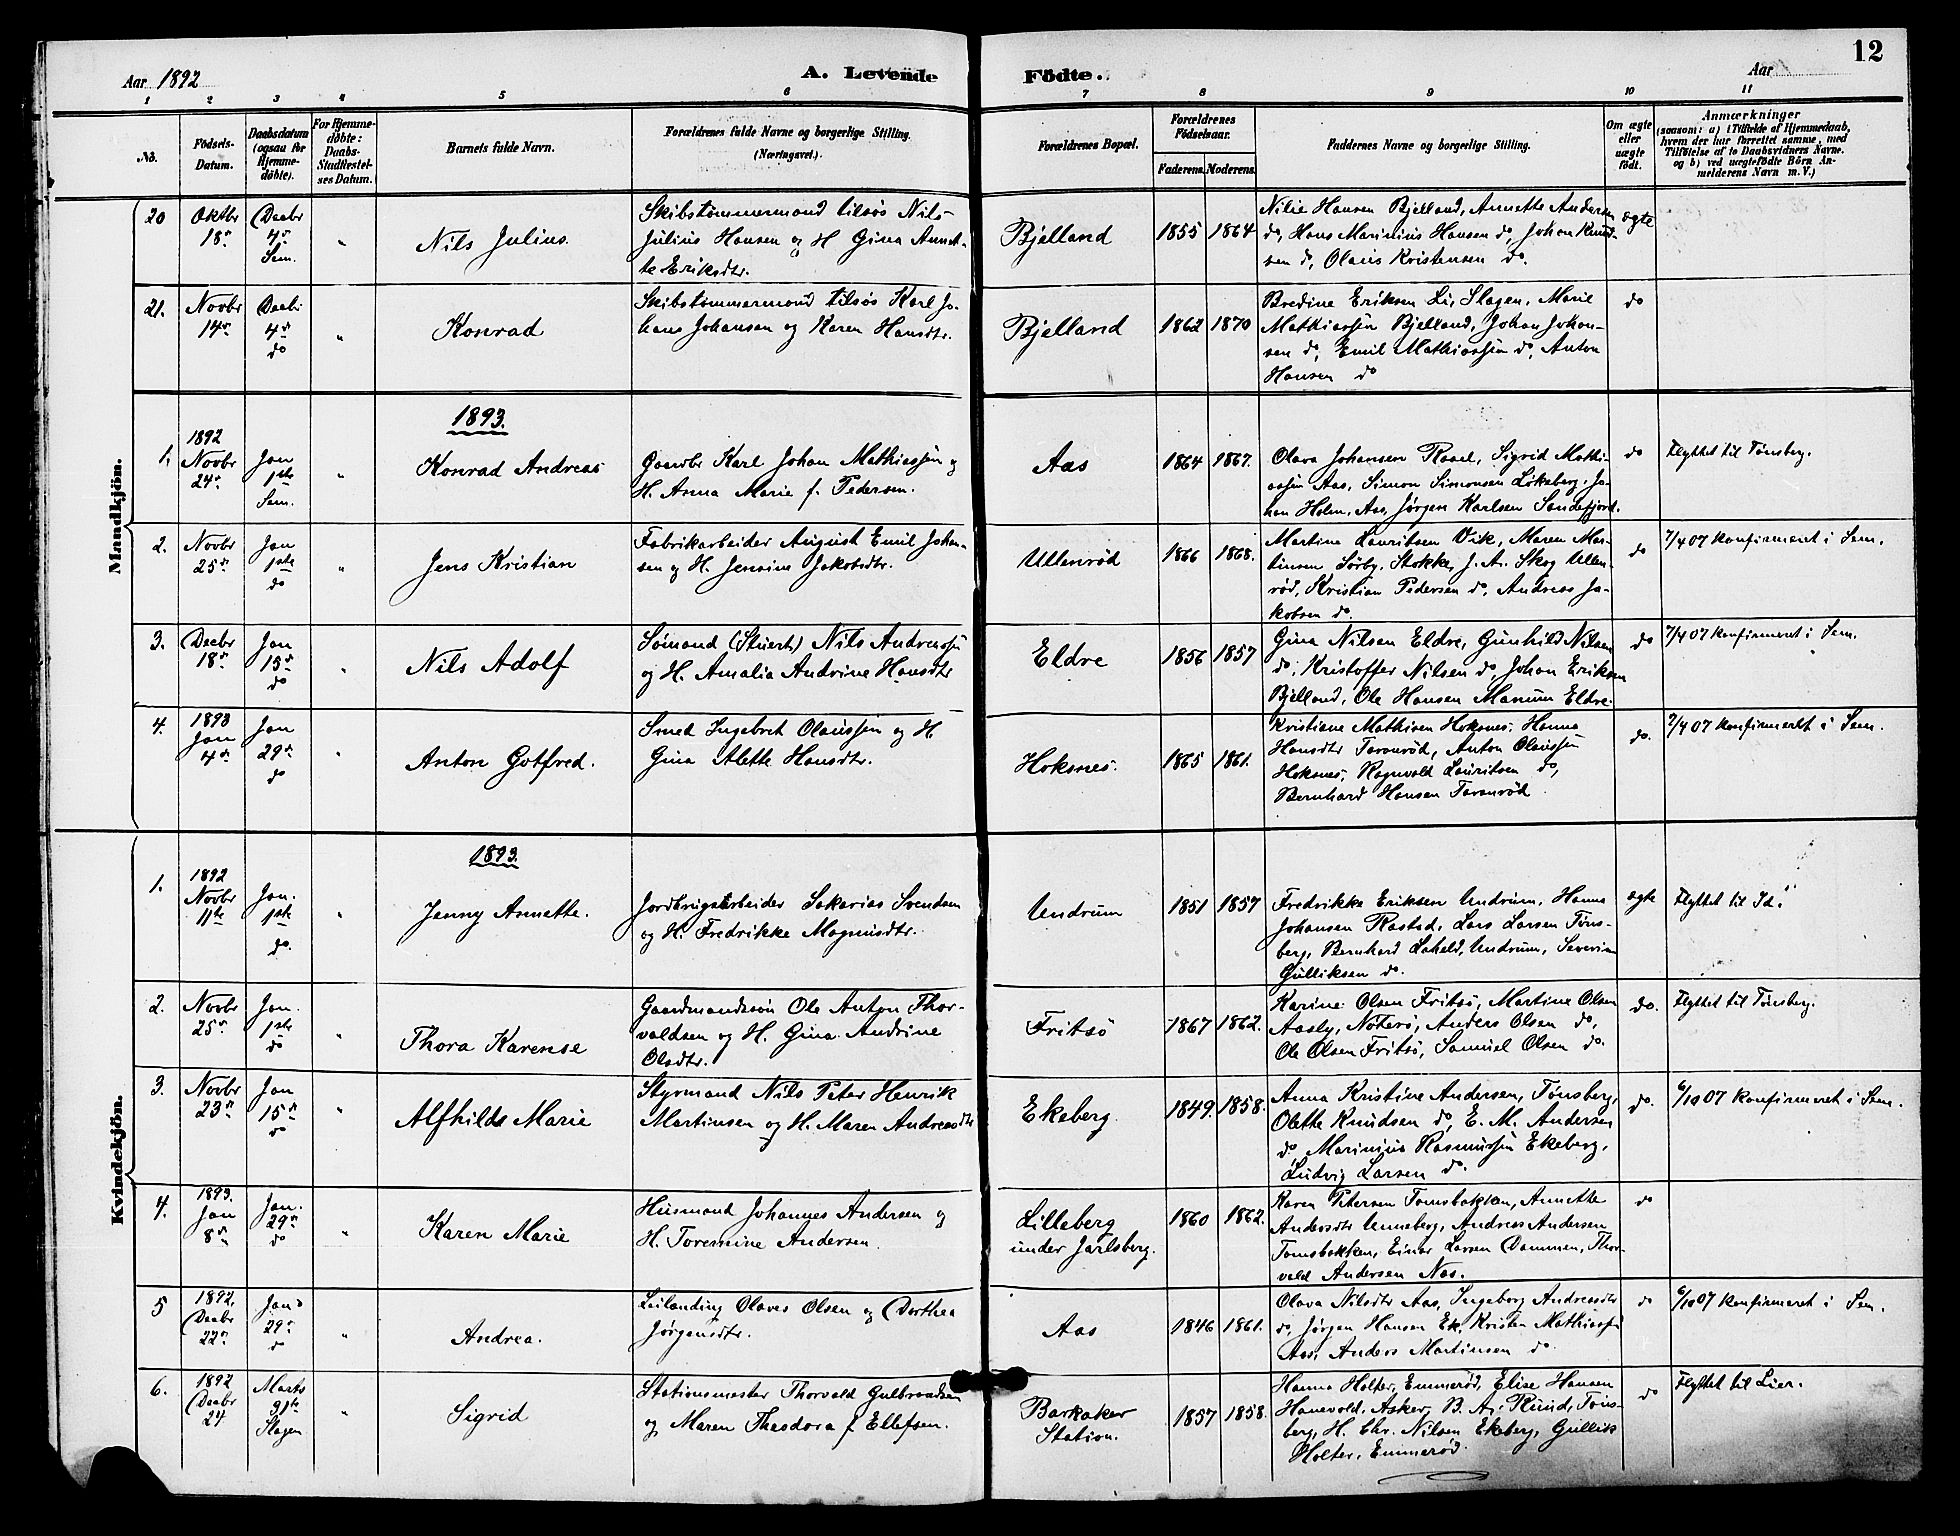 Aar 1892
A. Levende Födte.
Aar
12
1 2 3 4 5 6 7 8 9 10 11
No.
Födsels-
Datum.
Daabsdatum
(ogsaa for
Hjemme-
döbte).
For Hjemme-
döbte:
Daabs-
Stadfæstel-
ses Datum.
Barnets fulde Navn.
Forældrenes fulde Navne og borgerlige Stilling.
(Næringsvei.)
Forældrenes Bopæl.
Forældrenes
Födselsaar.
Faderens. Moderens.
Faddernes Navne og borgerlige Stilling.
Om ægte
eller
uægte
födt.
Anmærkninger
(saasom: a) i Tilfælde af Hjemmedaab,
hvem der har forrettet samme, med
Tilföielse af to Daabsvidners Navne.
og b) ved uægtefödte Börn An-
melderens Navn m. V.)
Mandkjön.
20
Oktbr
18de
Decbr
4de
Sem.
"
Nils Julius.
Skibstømmermand tilsøs Nils
Julius Hansen og H. Gina Annet-
te Eriksdtr.
Bjelland
1855 1864
Nilie Hansen Bjelland, Annette Andersen
do, Hans Marinius Hansen do, Johan Knud-
sen do, Olaus Kristensen do.
ægte
21.
Novbr
14de
Decbr
4de
do
"
Konrad
Skibstømmermand tilsøs Karl Jo-
hans Johansen og Karen Hansdtr.
Bjelland
1862 1870
Bredine Eriksen Li, Slagen, Marie
Mathiassen Bjelland, Johan Johan-
sen do, Emil Mathiassen do, Anton
Hansen do
do
1893.
1.
1892
Novbr
24de
Jan
1ste
Sem.
"
Konrad Andreas
Gaardbr Karl Johan Mathiassen og
H. Anna Marie f. Pedersen.
Aas
1864 1867.
Olava Johansen Raael, Sigrid Mathi-
assen Aas, Simon Simonsen Løkeberg, Jo-
han Holm, Aas, Jørgen Karlsen Sandefjord.
do
Flyttet til Tønsberg.
2.
Novbr
25de
Jan
1ste
do
"
Jens Kristian
Fabrikarbeider August Emil Johan-
sen og H. Jensine Jakobsdtr.
Ullenrød
1866 1868.
Martine Lauritsen Vik, Maren Mar-
tinsen Sørby, Stokke, J. A. Skog Ullen-
rød, Kristian Pedersen do, Andreas Ja-
kobsen do
do
7/4 07 konfirmeret i Sem.
3.
Decbr
18de
Jan
15de
do
"
Nils Adolf
Sømand (Stuert) Nils Andreassen
og H. Amalia Andrine Hansdtr
Eldre
1856 1857
Gina Nilsen Eldre, Gunhild Nilsen
do, Kristoffer Nilsen do, Johan Eriksen
Bjelland, Ole Hansen Manum Eldre.
do
7/4 07 konfirmeret i Sem.
4.
1893
Jan
4de
Jan
29de
do
"
Anton Gotfred.
Smed Ingebret Olaussen og H.
Gina Alette Hansdtr.
Hoksnes.
1865 1861.
Kristiane Mathisen Hoksnes, Hanna
Hansdtr Taranrød, Anton Olaussen
Hoksnes, Ragnvald Lauritsen do,
Bernhard Hansen Taranrød
do.
7/4 07 konfirmeret i Sem.
Kvindekjön.
1893.
1.
1892
Novbr
11te
Jan.
1ste
do.
"
Jenny Annette.
Jordbrugsarbeider Sakarias Svendsen
og H. Fredrikke Magnusdtr.
Undrum
1851 1857
Fredrikke Eriksen Undrum, Hanna
Johansen Rastad, Lars Larsen Tøns-
berg, Bernhard Laheld, Undrum, Severin
Gulliksen do.
ægte
Flyttet til Id.
2.
Novbr
25de
Jan.
1ste
do
"
Thora Karense
Gaardmandssøn Ole Anton Thor-
valdsen og H. Gina Andrine
Olsdtr.
Fritsø
1867 1862.
Karine Olsen Fritsø, Martine Olsen
Aasly, Nøterø, Anders Olsen do,
Ole Olsen Fritsø, Samuel Olsen do.
do.
Flyttet til Tønsberg.
3.
Novbr
23de
Jan
15de
do
"
Alfhilde Marie
Styrmand Nils Peter Henrik
Martinsen og H. Maren Andreasdtr
Ekeberg
1849. 1858.
Anna Kristine Andersen, Tønsberg,
Olette Knudsen do, E. M. Andersen
do, Marinius Rasmussen Ekeberg,
Ludvig Larsen do.
do.
6/10 07 konfirmeret i Sem.
4.
1893.
Jan
8de
Jan.
29de
do
"
Karen Marie
Husmand Johannes Andersen og
H. Toremine Andersen.
Lilleberg
under Jarlsberg.
1860 1862.
Karen Petersen Tomsbakken, Annette
Andersdtr Unneberg, Andreas Andersen
Tomsbakken, Einar Larsen Dammen, Thor-
vald Andersen Nas.
do
5
1892.
Decbr
22de
Jan
29de
do
"
Andrea.
Leilending Olaves Olsen og Dorthea
Jørgensdtr.
Aas
1846 1861.
Olava Nilsdtr Aas, Ingeborg Andreasdtr
do, Jørgen Hansen Ek, Kristen Mathiassen
Aas, Anders Martinsen do.
do
6/10 07 konfirmeret i Sem.
6.
1892
Decbr
24
Marts
31te
Slagen
"
Sigrid
Stationsmester Thorvald Gulbrandsen
og Maren Theodora f. Ellefsen.
Barkaker
Station.
1857 1858.
Hanna Holter, Emmerød, Elise Hansen
Hanevold, Asker, B. A. Ruud, Tøns-
berg, H. Chr. Nilsen Ekeberg, Gullik
Holter, Emmerød.
do
Flyttet til Lier.